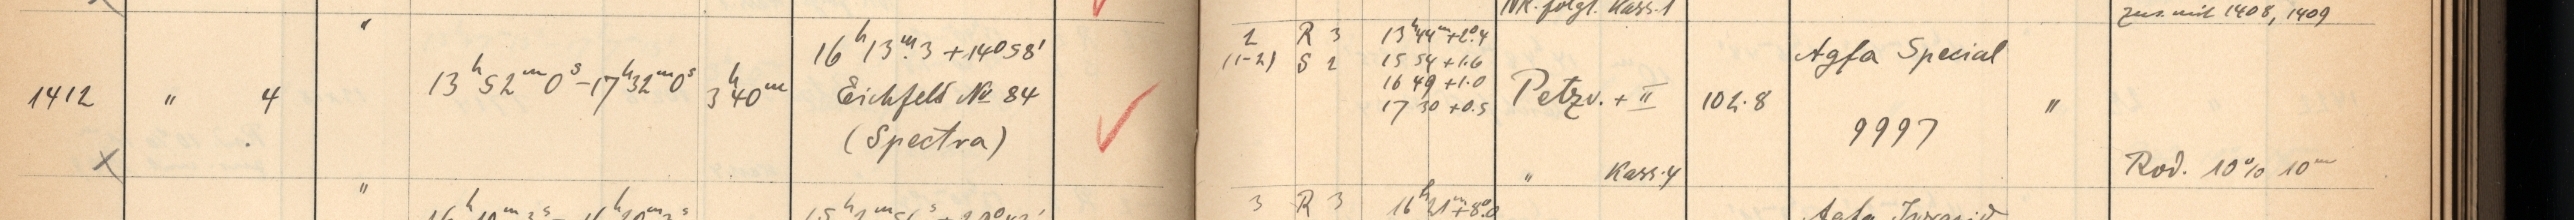 NK. folgt. Kass. 1
zus. mit 1408, 1409
"
1412 " 4 13ʰ52ᵐ0ˢ–17ʰ32ᵐ0ˢ 3ʰ40ᵐ
16ʰ13ᵐ.3 +14°58'
Eichfeld № 84
(Spectra)
2 R 3 13ʰ44ᵐ+2°.4
(1-2) S 2 15 54 +1.6
16 49 +1.0
17 30 +0.5
Petzv. + II 102.8
" Kass. 4
Agfa Special
9997
"
Rod. 10% 10ᵐ
"
3 R 3 16ʰ21ᵐ+8°.0
Agfa